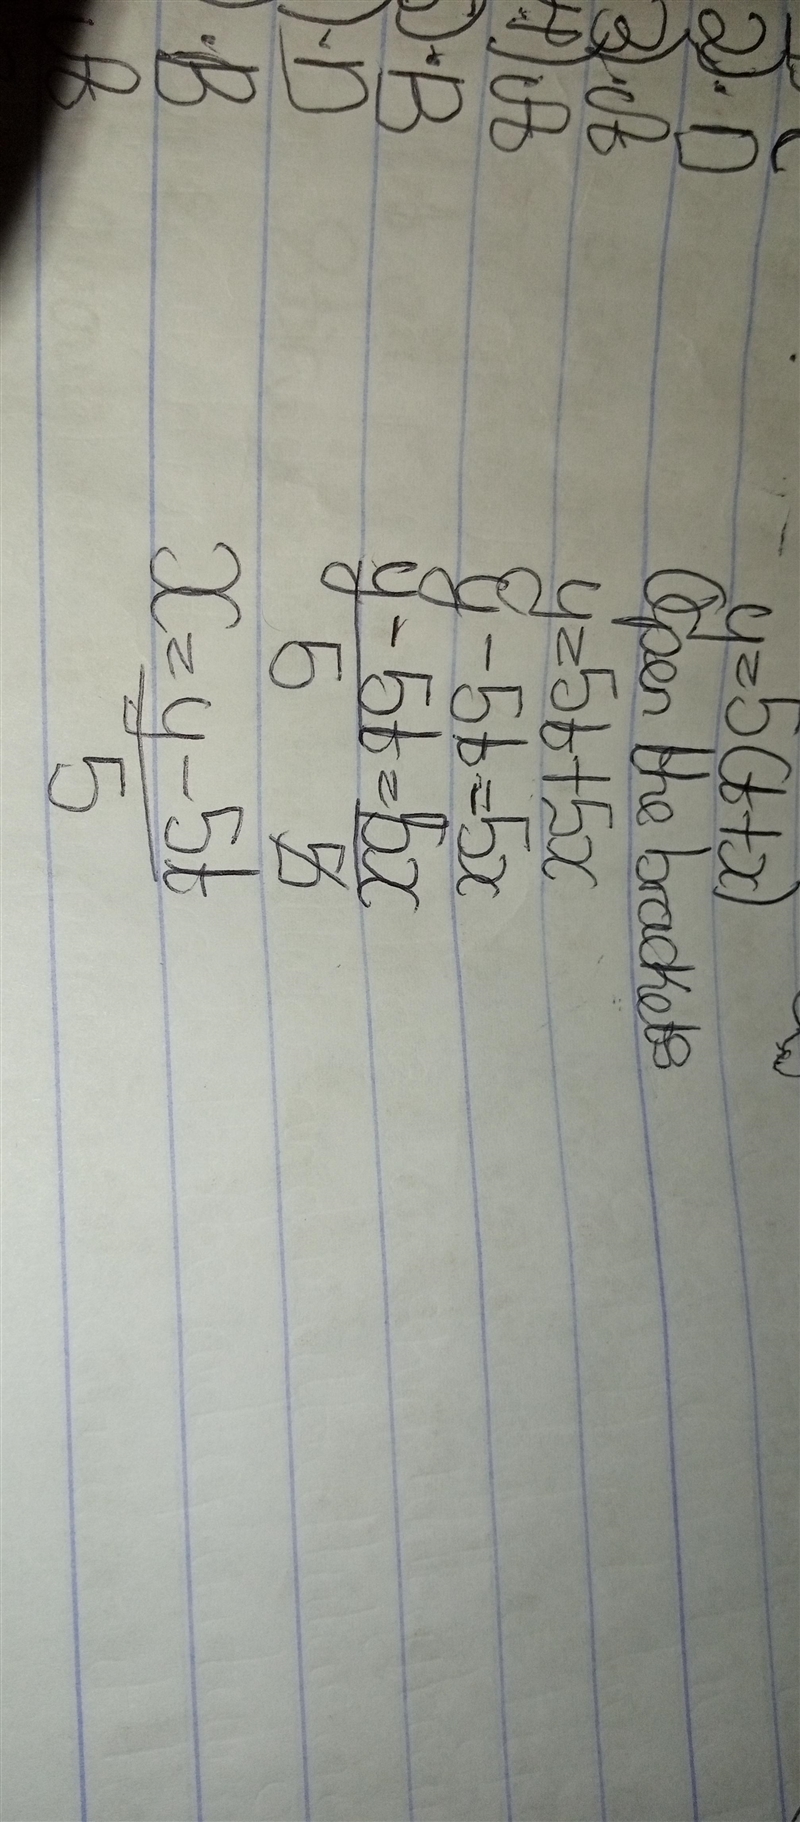 2) . D
3) . A
4) A
) . B
) . D
. B
. A
y = 5(t+x)
Open the brackets
y = 5t + 5x
y - 5t = 5x
y - 5t = 5x
5 5
x = y - 5t
5